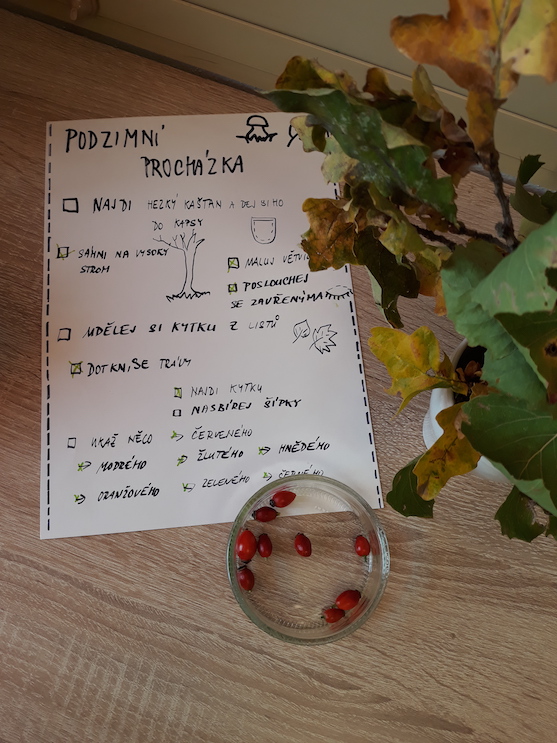 PODZIMNÍ
PROCHÁZKA
NAJDI HEZKÝ KAŠTAN A DEJ SI HO
DO KAPSY
SÁHNI NA VYSOKÝ
STROM
MALUJ
POSLOUCHEJ
SE ZAVŘENÝMA
UDĚLEJ SI KYTKU Z LISTŮ
DOTKNI SE TRÁVY
NAJDI KYTKU
NASBÍREJ ŠÍPKY
UKAŽ NĚCO
ČERVENÉHO
MODRÉHO
ŽLUTÉHO
HNĚDÉHO
ORANŽOVÉHO
ZELENÉHO
ČERNÉHO